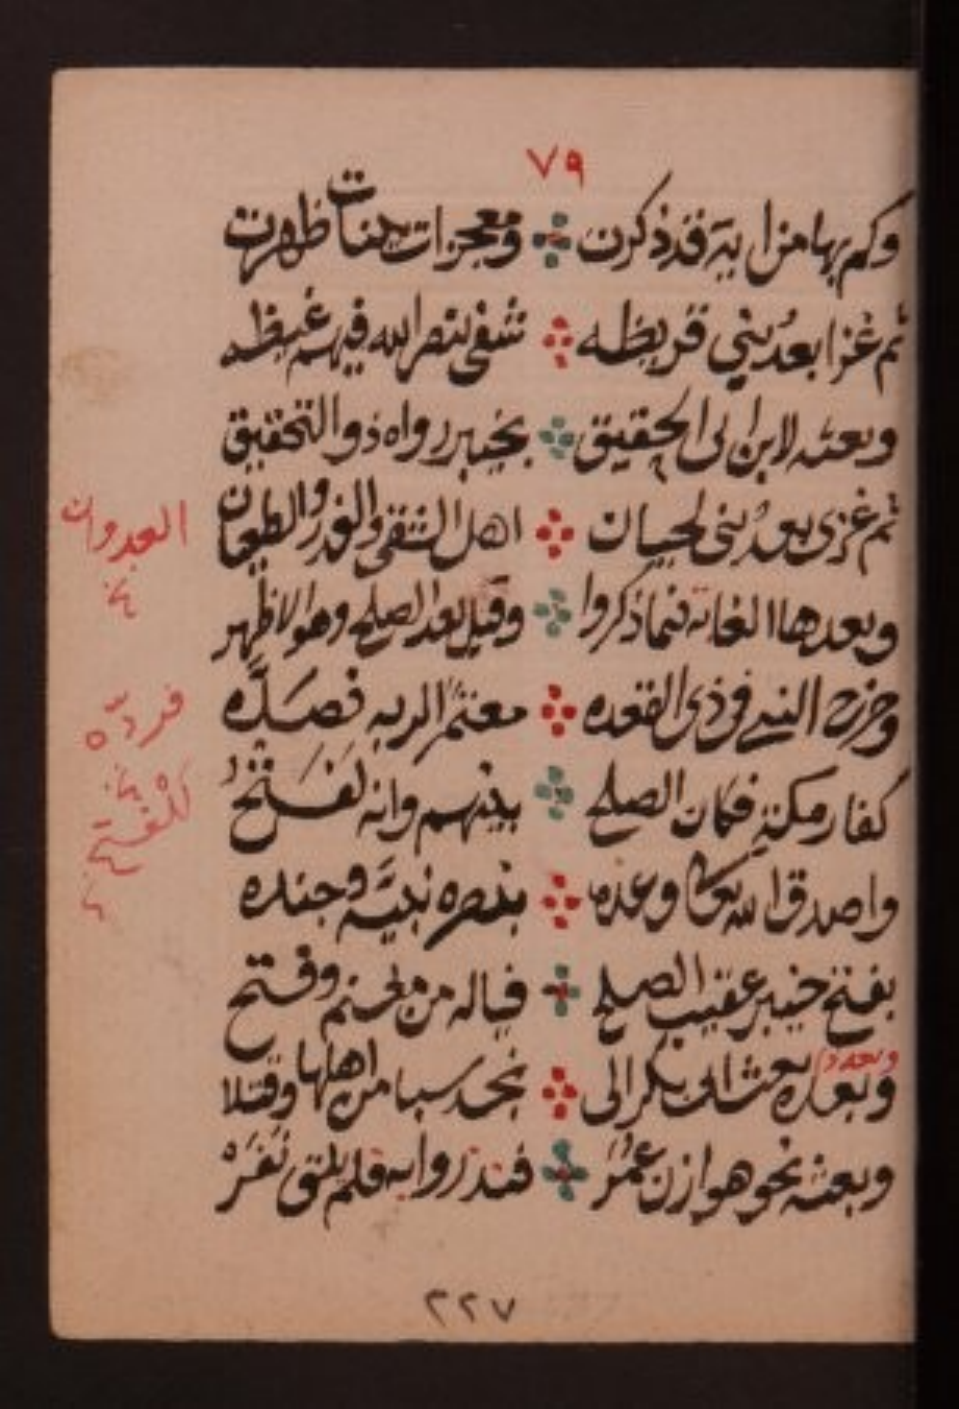 ٧٩
وكم بها من اية قد ذكرت ومعجزات بينات ظهرت
ثم غزا بعد بني قريظه شفى بنصر الله فيهم غيظه
وبعثه لابن ابي الحقيق بخيبر رواه ذوا التحقيق
ثم غزى بعد بني لحيان اهل الشقى والغدر والطعان
العدوان
وبعدها الغابة فيما ذكروا وقيل بعد الصلح وهو الاظهر
وخرج النبي في ذي القعده معتمرا لربه فصده
فردّه
كفار مكة فكان الصلح بينهم وانه لفتح
للفتح
واصدق الله تعالى وعده بنصره نبيه وجنده
بفتح خيبر عقيب الصلح فياله من مغنم وفتح
وبعده بعث ابي بكر الى نجد سبا من اهلها وقتلا
وبعثه نحو هوازن عمر فنذروا به فلم يلق نفر
٢٢٧